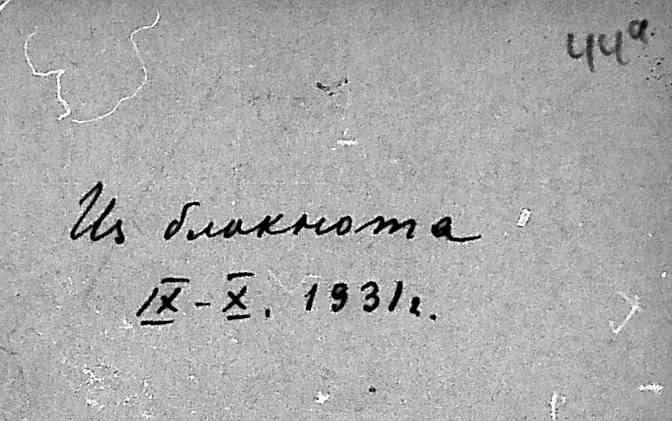 44а.
Из блокнота
IX-X. 1931г.